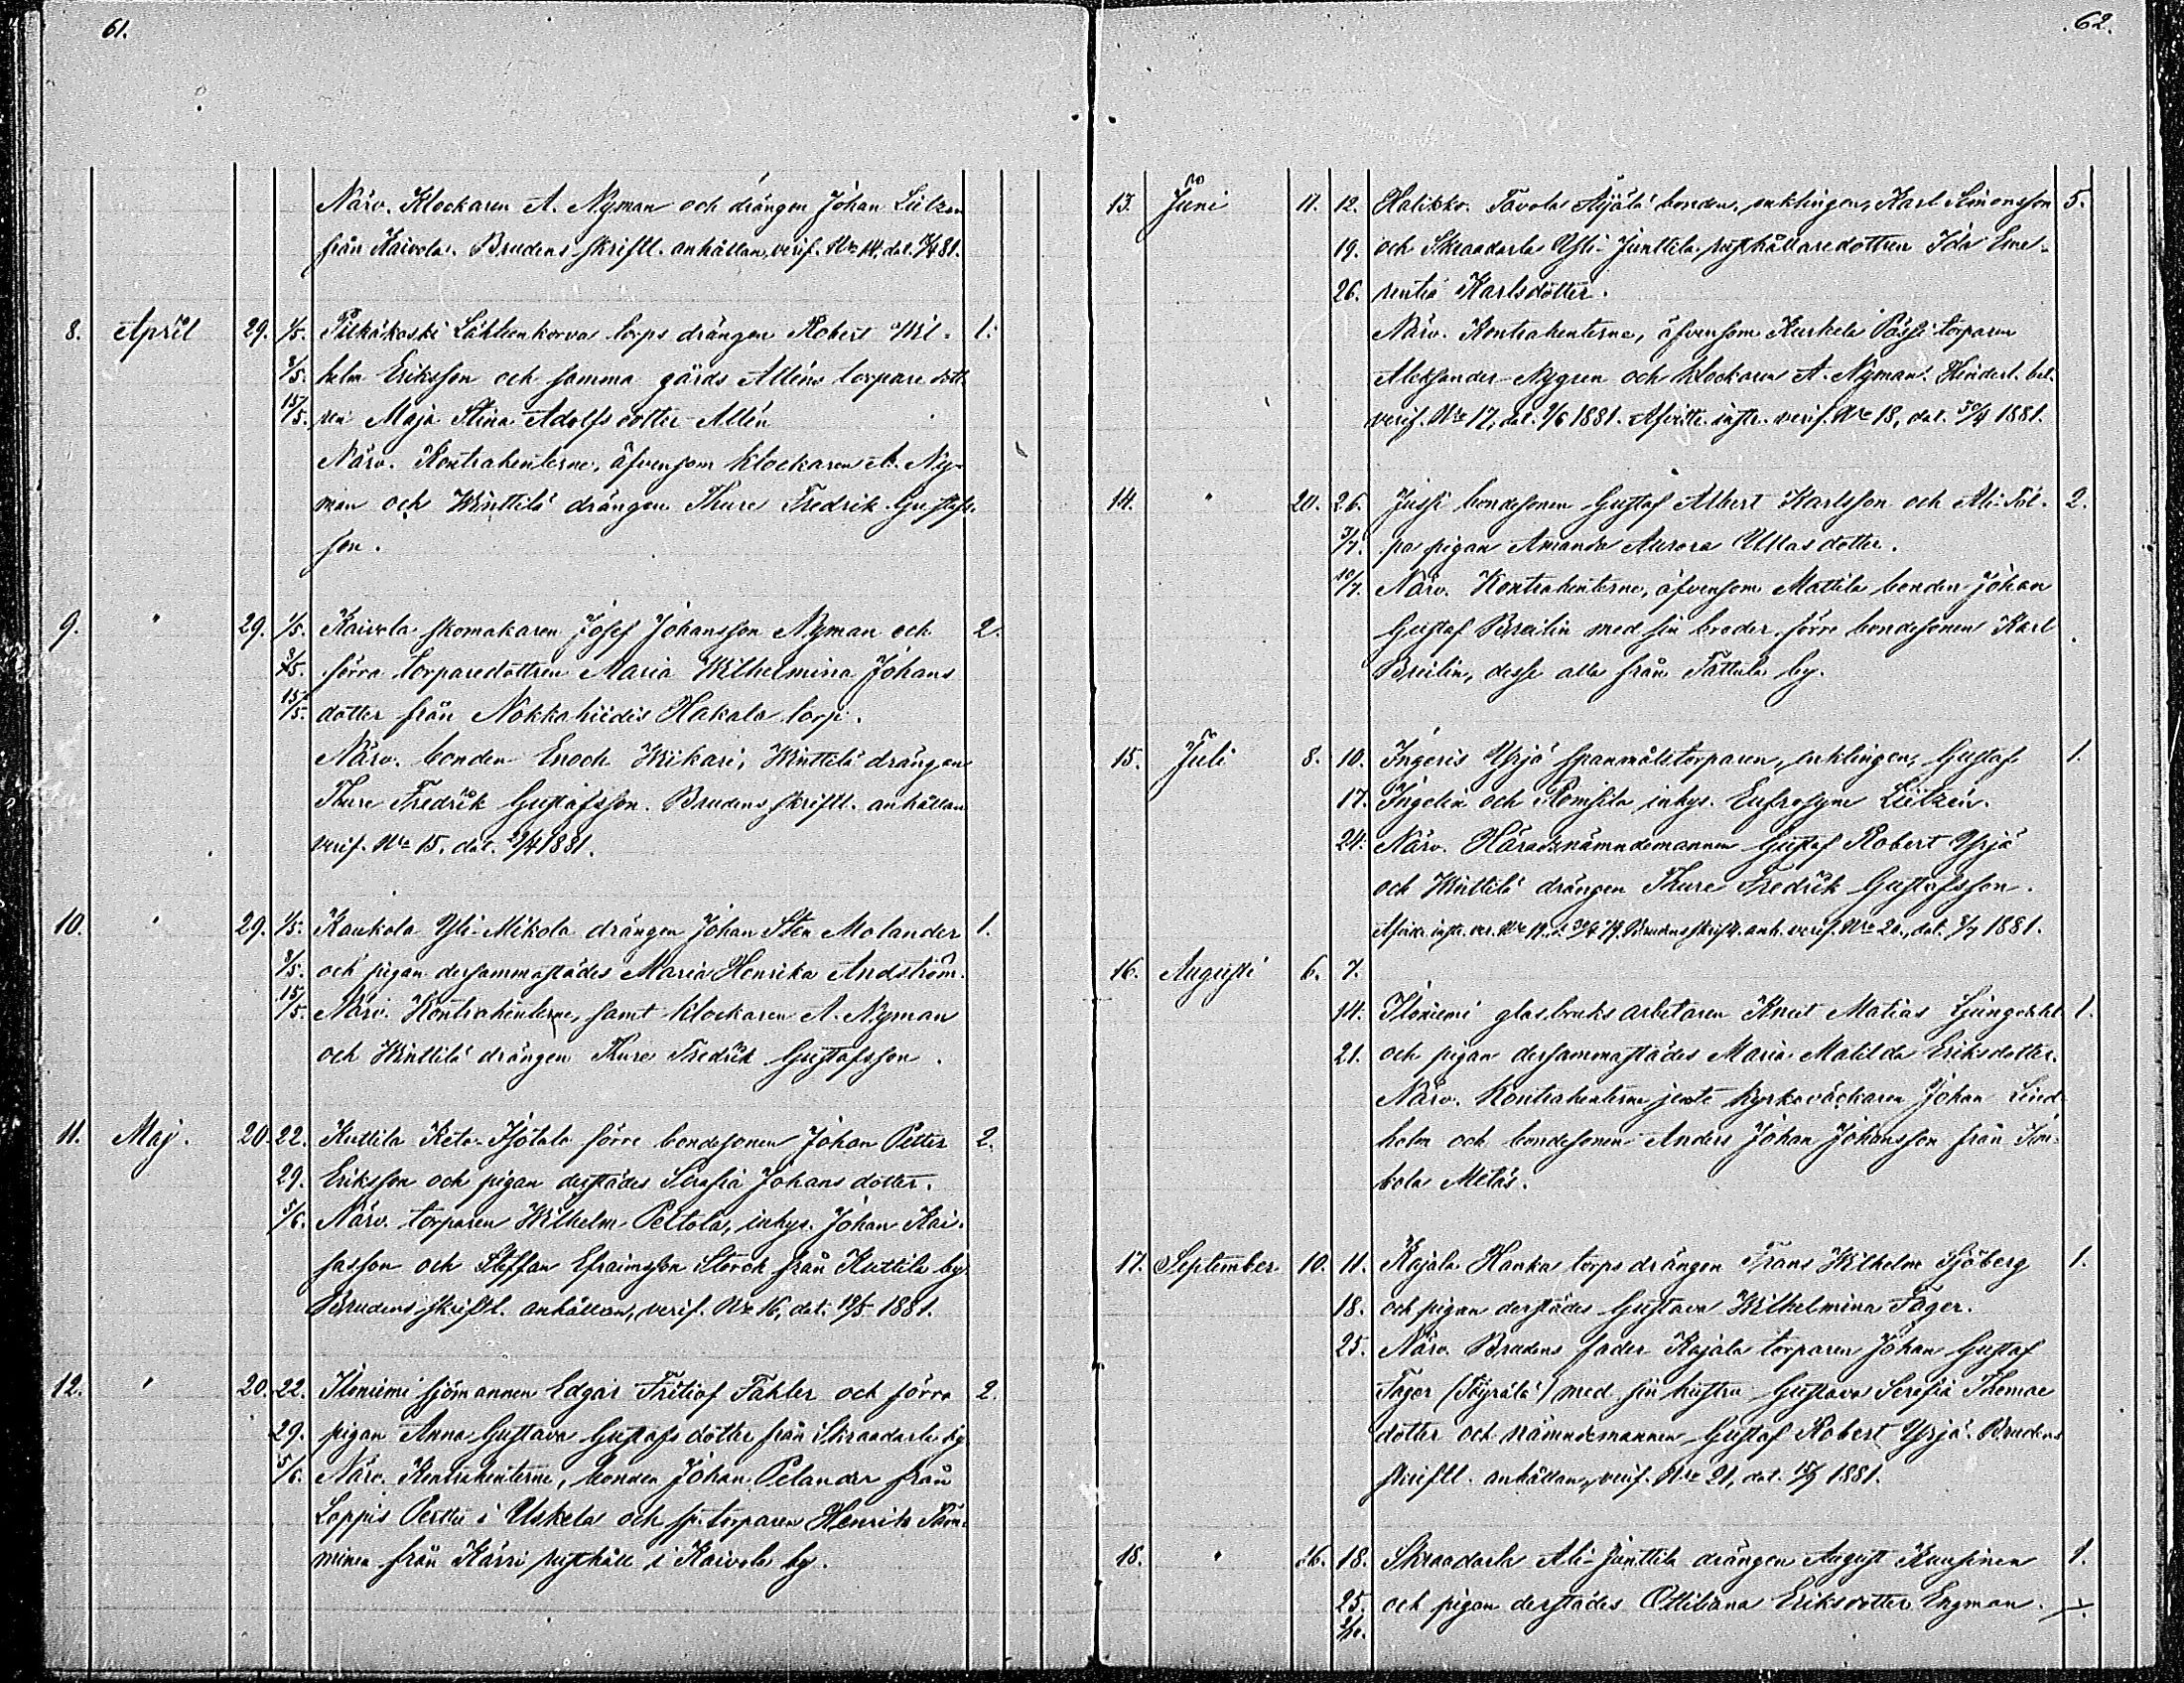 61.
Närv. Klockaren A. Nyman och drängen Johan Lützen
från Kaivola. Brudens skriftl. anhållan, verif. No 14, dat. 81.
8. April 29. 1/5. Pitkäkoski Lähteenkorva torps drängen Robert Wil- 1.
8/5. helm Eriksson och samma gårds Alléns torpare dott-
15/5. ren Maja Stina Adolfsdotter Allén
Närv. Kontrahenterne, äfvensom klockaren A. Ny-
man och Winttilä drängen Thure Fredrik Gustafs-
son.
9. " 29. 1/5. Kaivola skomakaren Josef Johansson Nyman och 2.
8/5. förra torparedottren Maria Wilhelmina Johans
15/5. dotter från Nokkahiidis Hakala torp.
Närv. bonden Enoch Wikari, Winttilä drängen
Thure Fredrik Gustafsson. Brudens skriftl. anhållan
verif. No 15. dat. 29/4 1881.
10. " 29. 1/5. Kaukola Yli-Mikola drängen Johan Sten Molander 1.
8/5. och pigan dersammastädes Maria Henrika Andström.
15/5. Närv. Kontrahenterne, samt klockaren A. Nyman
och Winttilä drängen Thure Fredrik Gustafsson.
11. Maj. 20. 22. Kuttila Keto-Isotalo förre bondesonen Johan Petter 2.
29. Eriksson och pigan derstädes Serafia Johans dotter.
5/6. Närv. torparen Wilhelm Peltola, inhys. Johan Kai-
sasson och Steffan Efraimsson Storck från Kuttila by.
Brudens skriftl. anhållan, verif. No 16, dat. 19/5 1881.
12. " 20. 22. Iloniemi sjömannen Edgar Fritiof Fahler och förra 2.
29. pigan Anna Gustava Gustafs dotter från Skraadarla by.
5/6. Närv. Kontrahenterne, bonden Johan Pelander från
Loppis Perttu i Uskela och sp. torparen Henrik Tam-
minen från Kärri rusthåll i Kaivola by.
62.
13. Juni 11. 12. Halikko. Tavola Äijälä bonden, enklingen, Karl Simonsson 5.
19. och Skraadarla Yli-Junttila rusthållaredottren Ida Eme-
26. rentia Karlsdotter.
Närv. Kontrahenterne, äfvensom Kurkela Pässi torparen
Aleksander Nygren och klockaren A. Nyman. Hinderl. bet.
verif. No 17, dat. 9/6 1881. Afvittr. instr. verif. No 18, dat. 30/4 1881.
14. " 20. 26. Jussi bondesonen Gustaf Albert Karlsson och Ali-Pil- 2.
3/7. pa pigan Amanda Aurora Ullasdotter.
10/7. Närv. Kontrahenterne, äfvensom Mattila bonden Johan
Gustaf Breilin med sin broder förre bondesonen Karl
Breilin, desse alla från Tattula by.
15. Juli 8. 10. Ingeris Yrjö spanmålstorparen, enklingen, Gustaf 1.
17. Ingelin och Romsila inhys. Eufrosyne Lützén.
24. Närv. Häradsnämndemannen Gustaf Robert Yrjö
och Winttilä drängen Thure Fredrik Gustafsson.
Afvittr. instr. ver. No 19. d. 79. Brudens skriftl. anh. verif. No 20, dat. 8/7 1881.
16. Augusti 6. 7.
14. Iloniemi glasbruks arbetaren Knut Matias Ljungdahl 1.
21. och pigan dersammastädes Maria Matilda Eriksdotter.
Närv. Kontrahenterne jemte kyrkoväckaren Johan Lind-
holm och bondesonen Anders Johan Johansson från
kola Metäs.
17. September 10. 11. Kajala Hanka torps drängen Frans Wilhelm Sjöberg 1.
18. och pigan derstädes Gustava Wilhelmina Fager.
25. Närv. Brudens fader Kajala torparen Johan Gustaf
Fager (Töyrälä) med sin hustru Gustava Serafia Thomae
dotter och nämndemannen Gustaf Robert Yrjö. Brudens
skriftl. anhållan, verif. No 21, dat. 1881.
18. " 16. 18. Skraadarla Ali-Junttila drängen August Kuusinen 1.
25. och pigan derstädes Ottiliana Eriksdotter Engman.
2/10.